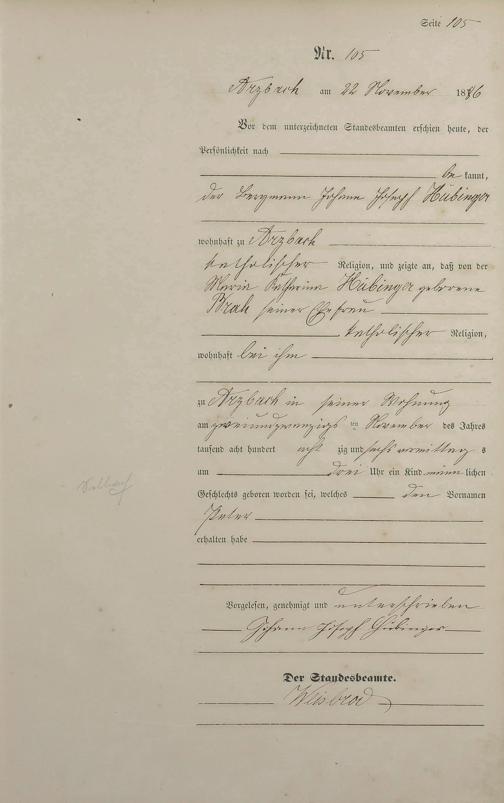 Seite 105
Nr. 105
Arzbach am 22 November 1886
Vor dem unterzeichneten Standesbeamten erschien heute, der
Persönlichkeit nach
be kannt,
der Bergmann Johann Joseph Hübinger
wohnhaft zu Arzbach
katholischer Religion, und zeigte an, daß von der
Maria Katharina Hübinger geborene
seiner Ehefrau
katholischer Religion,
wohnhaft bei ihm
zu Arzbach in seiner Wohnung
am zweiundzwanzigsten November des Jahres
tausend acht hundert acht zig und sechs vormittags
um drei Uhr ein Kind männlichen
Geschlechts geboren worden sei, welches den Vornamen
Peter
erhalten habe
Vorgelesen, genehmigt und unterschrieben
Johann Joseph Hübinger
Der Standesbeamte.
Weisbrod